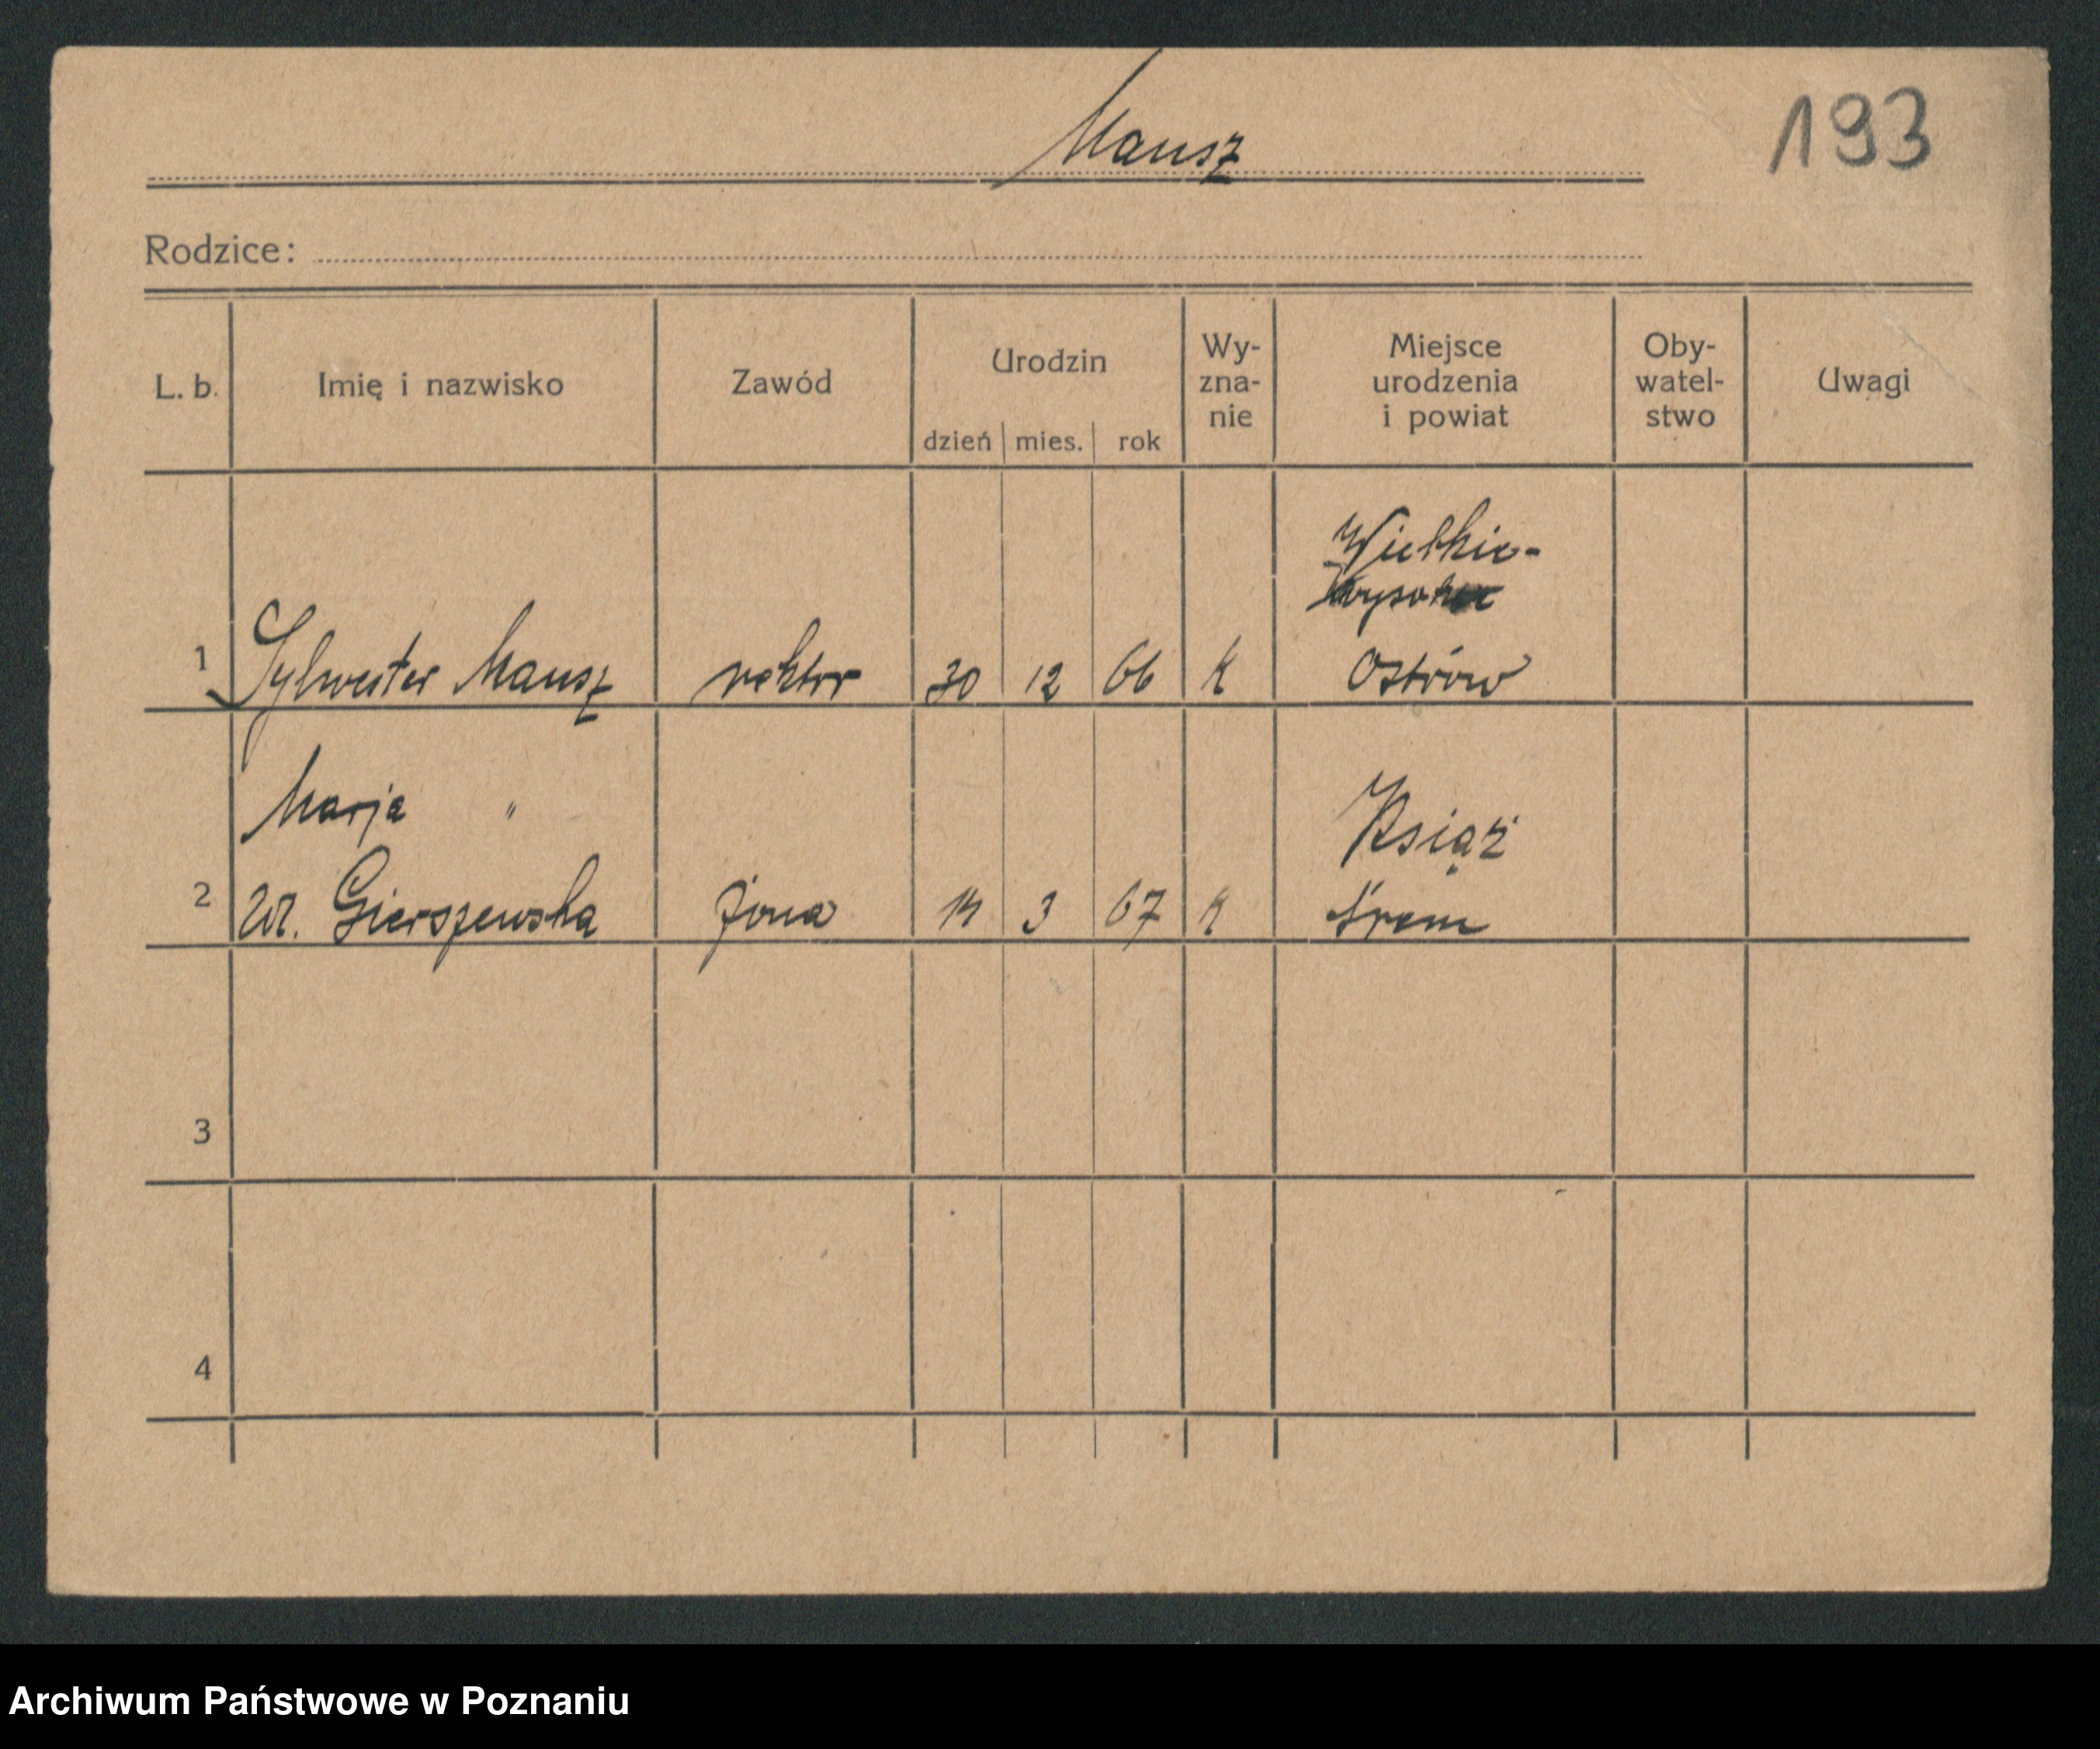 Mansz
193
Rodzice:
L. b. Imię i nazwisko Zawód Urodzin dzień mies. rok Wy-zna-nie Miejsce urodzenia i powiat Oby-watel-stwo Uwagi
Wielkie-
1 Sylwester Mansz rektor 30 12 66 K Ostrów
Marja " Książ
2 ur. Gierszewska żona 3 67 K Śrem
3
4
Archiwum Państwowe w Poznaniu